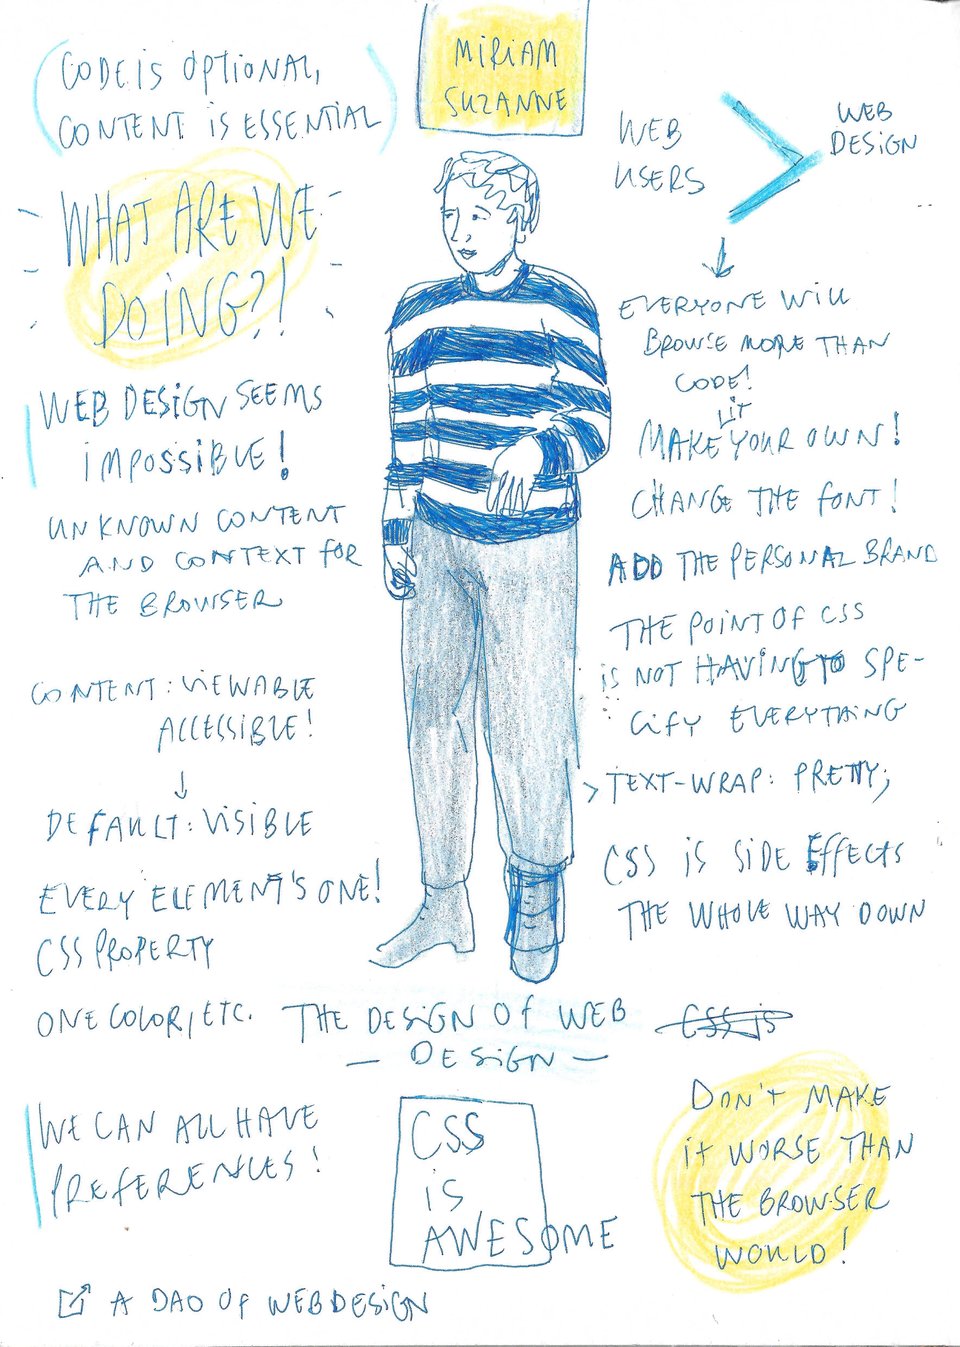 MIRIAM
SUZANNE
CODE IS OPTIONAL,
CONTENT IS ESSENTIAL
WHAT ARE WE
DOING?!
WEB DESIGN SEEMS
IMPOSSIBLE!
UNKNOWN CONTENT
AND CONTEXT FOR
THE BROWSER
CONTENT: VIEWABLE
ACCESSIBLE!
↓
DEFAULT: VISIBLE
EVERY ELEMENT'S ONE!
CSS PROPERTY
ONE COLOR, ETC.
WE CAN ALL HAVE
PREFERENCES!
A DAO OF WEB DESIGN
THE DESIGN OF WEB
— DESIGN —
CSS
IS
AWESOME
WEB
USERS
>
WEB
DESIGN
↓
EVERYONE WILL
BROWSE MORE THAN
CODE!
MAKE IT YOUR OWN!
CHANGE THE FONT!
ADD THE PERSONAL BRAND
THE POINT OF CSS
IS NOT HAVING TO SPE-
CIFY EVERYTHING
> TEXT-WRAP: PRETTY;
CSS IS SIDE EFFECTS
THE WHOLE WAY DOWN
CSS is
DON'T MAKE
it WORSE THAN
THE BROWSER
WOULD!